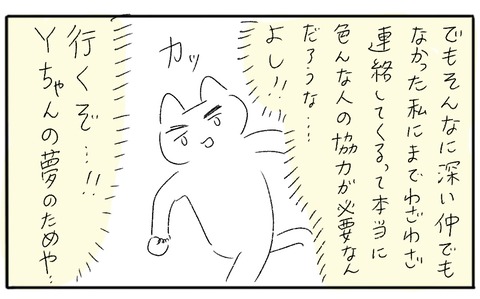 でもそんなに深い仲でも
なかった私にまでわざわざ
連絡してくるって本当に
色んな人の協力が必要なん
だろうな……
よし!!
カッ
行くぞ…!!
Yちゃんの夢のためや!